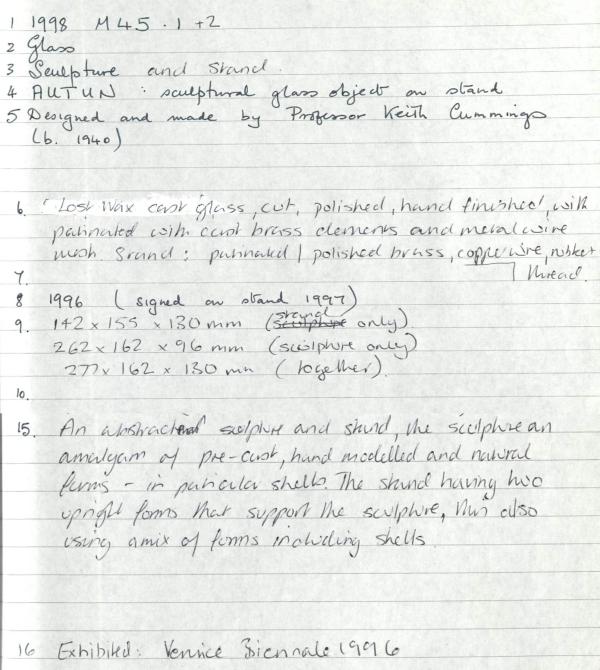 1 1998 M45.1+2
2 Glass
3 Sculpture and Stand.
4 AUTUN : sculptural glass object on stand
5 Designed and made by Professor Keith Cummings
(b. 1940)
6. Lost wax cast glass, cut, polished, hand finished, with
patinated with cast brass elements and metal wire
mesh. Stand: patinated / polished brass, copper wire, rubber
7. thread.
8 1996 (signed on stand 1997)
9. 142 x 155 x 130 mm (sculpture stand only)
262 x 162 x 96 mm (sculpture only)
277 x 162 x 130 mm (together).
10.
15. An abstract sculpture and stand, the sculpture an
amalgam of pre-cast, hand modelled and natural
forms - in particular shells. The stand having two
upright forms that support the sculpture, this also
using a mix of forms including shells
16 Exhibited: Vennice Biennale 1996